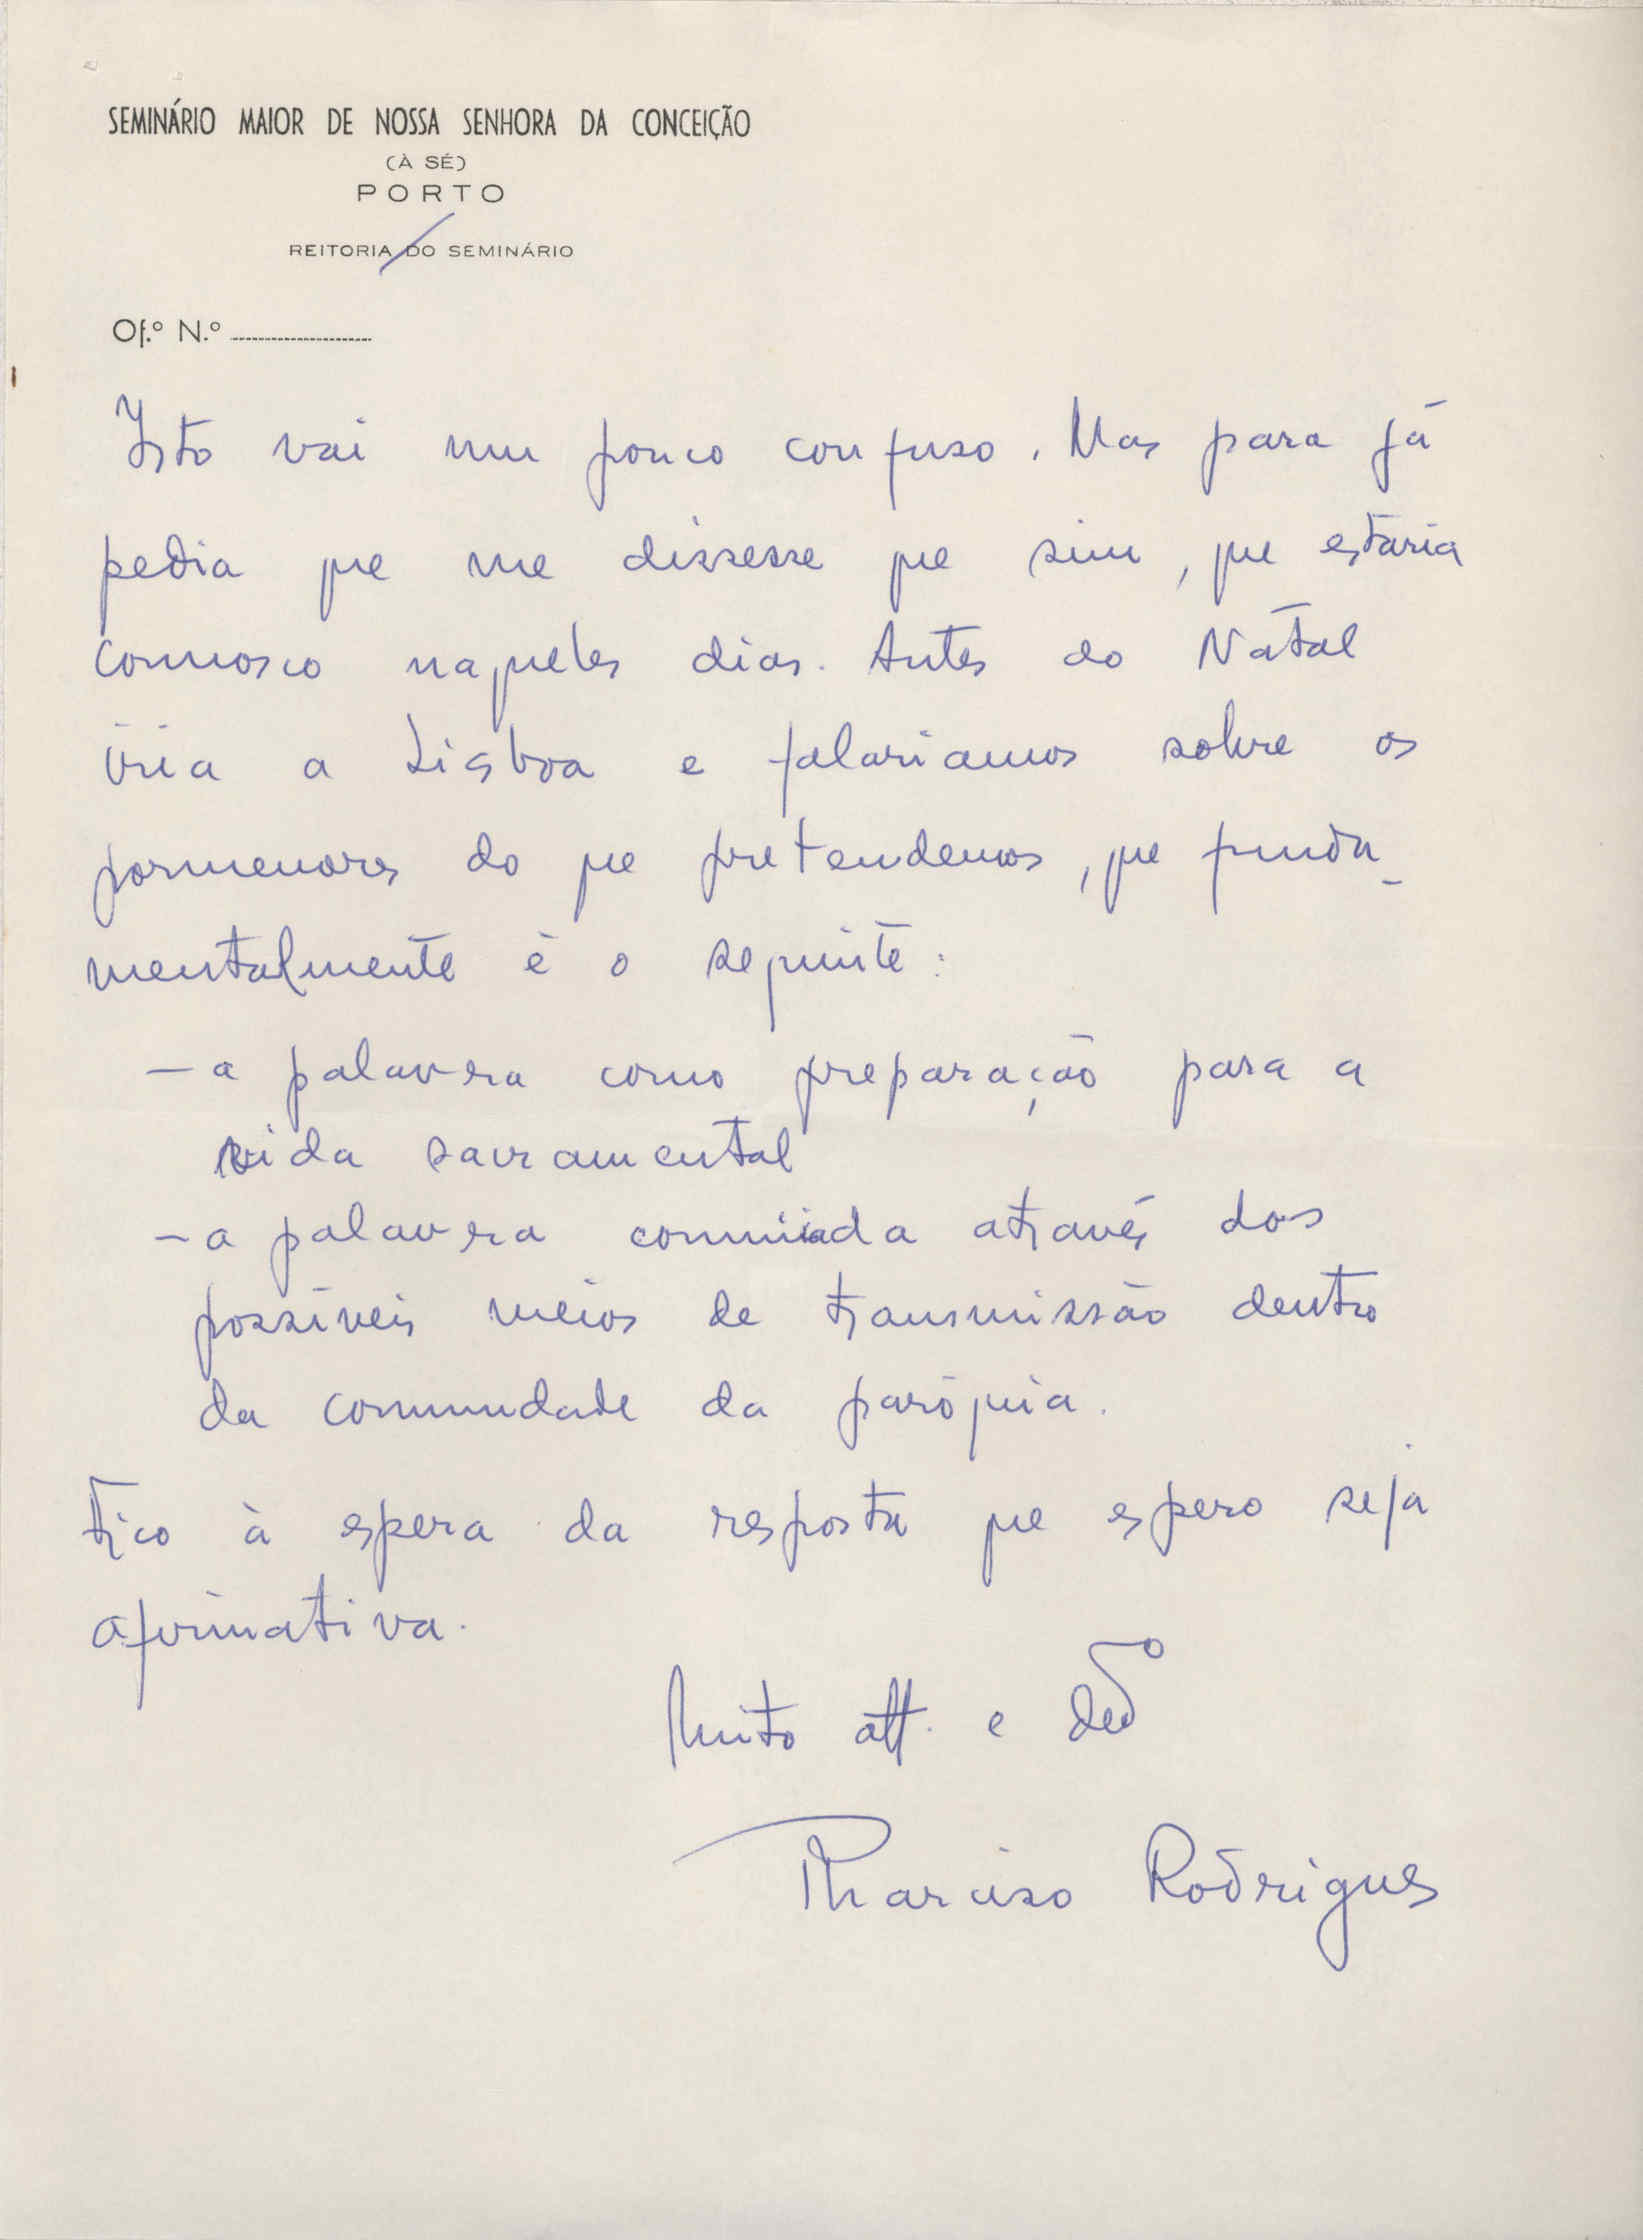 SEMINÁRIO MAIOR DE NOSSA SENHORA DA CONCEIÇÃO
(À SÉ)
PORTO
REITORIA DO SEMINÁRIO
Of.º N.º
Isto vai um pouco confuso. Mas para já
pedia que me dissesse que sim, que estaria
connosco naqueles dias. Antes do Natal
iria a Lisboa e falariamos sobre os
pormenores do que pretendemos, que funda-
mentalmente é o seguinte:
- a palavra como preparação para a
vida sacramental
- a palavra através dos
possíveis meios de transmissão dentro
da comunidade da paróquia.
Fico à espera da resposta que espero seja
afirmativa.
Muito att. e dedº
Tharciso Rodrigues